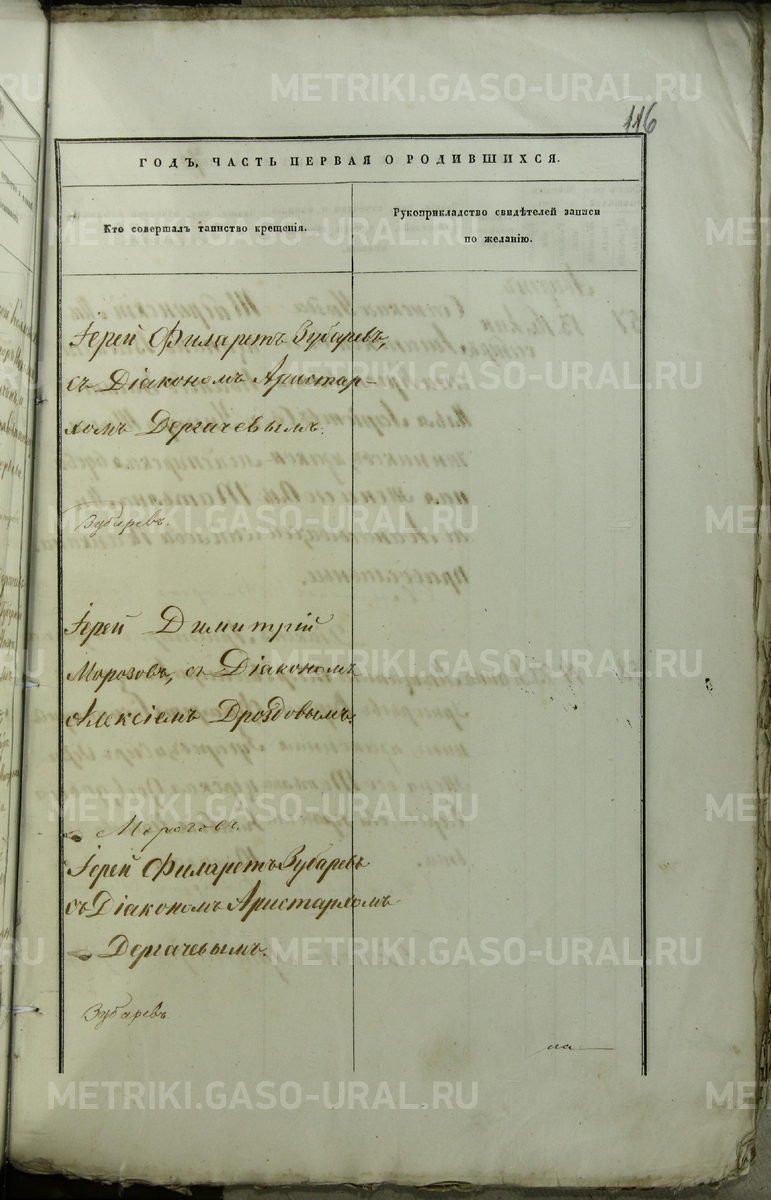 METRIKI.GASO-URAL.RU
116
ГОДЪ, ЧАСТЬ ПЕРВАЯ О РОДИВШИХСЯ.
Кто совершалъ таинство крещенія.
Рукоприкладство свидѣтелей записи
по желанію.
Іерей Филаретъ Зубаревъ,
съ Діакономъ Аристар-
хомъ Дергачевымъ.
Зубаревъ.
Іерей Димитрій
Морозовъ, съ Діакономъ
Алексіемъ Дроздовымъ.
Морозовъ.
Іерей Филаретъ Зубаревъ
съ Діакономъ Аристархомъ
Дергачевымъ.
Зубаревъ.